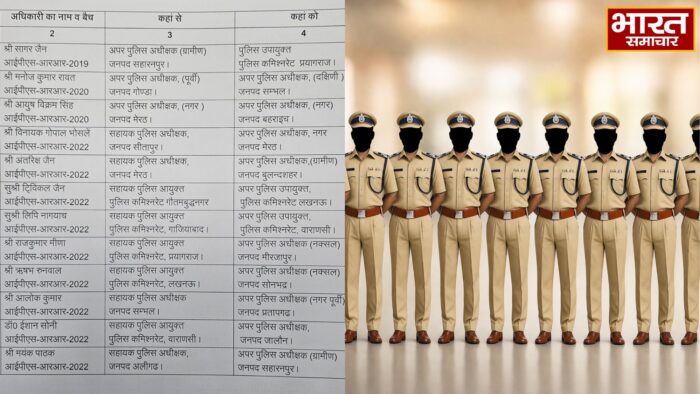 भारत
समाचार
अधिकारी का नाम व बैच | कहां से | कहां को
2 | 3 | 4
श्री सागर जैन | अपर पुलिस अधीक्षक (ग्रामीण) | पुलिस उपायुक्त
आईपीएस-आरआर-2019 | जनपद सहारनपुर। | पुलिस कमिश्नरेट प्रयागराज।
श्री मनोज कुमार रावत | अपर पुलिस अधीक्षक, (पूर्वी) | अपर पुलिस अधीक्षक, (दक्षिणी)
आईपीएस-आरआर-2020 | जनपद गोण्डा। | जनपद सम्भल।
श्री आयुष विक्रम सिंह | अपर पुलिस अधीक्षक, (नगर) | अपर पुलिस अधीक्षक, (नगर)
आईपीएस-आरआर-2020 | जनपद मेरठ। | जनपद बहराइच।
श्री विनायक गोपाल भोसले | सहायक पुलिस अधीक्षक, | अपर पुलिस अधीक्षक, नगर
आईपीएस-आरआर-2022 | जनपद सीतापुर। | जनपद मेरठ।
श्री अंतरिक्ष जैन | सहायक पुलिस अधीक्षक, | अपर पुलिस अधीक्षक,(ग्रामीण)
आईपीएस-आरआर-2022 | जनपद मेरठ। | जनपद बुलन्दशहर।
सुश्री ट्विंकल जैन | सहायक पुलिस आयुक्त | अपर पुलिस उपायुक्त,
आईपीएस-आरआर-2022 | पुलिस कमिश्नरेट गौतमबुद्धनगर | पुलिस कमिश्नरेट लखनऊ।
सुश्री लिपि नागयाच | सहायक पुलिस आयुक्त | अपर पुलिस उपायुक्त,
आईपीएस-आरआर-2022 | पुलिस कमिश्नरेट, गाजियाबाद। | पुलिस कमिश्नरेट, वाराणसी।
श्री राजकुमार मीणा | सहायक पुलिस आयुक्त | अपर पुलिस अधीक्षक (नक्सल)
आईपीएस-आरआर-2022 | पुलिस कमिश्नरेट, प्रयागराज। | जनपद मीरजापुर।
श्री ऋषभ रुनवाल | सहायक पुलिस आयुक्त | अपर पुलिस अधीक्षक (नक्सल)
आईपीएस-आरआर-2022 | पुलिस कमिश्नरेट, लखनऊ। | जनपद सोनभद्र।
श्री आलोक कुमार | सहायक पुलिस अधीक्षक | अपर पुलिस अधीक्षक (नगर पूर्वी)
आईपीएस-आरआर-2022 | जनपद सम्भल। | जनपद प्रतापगढ़।
डॉ0 ईशान सोनी | सहायक पुलिस आयुक्त | अपर पुलिस अधीक्षक,
आईपीएस-आरआर-2022 | पुलिस कमिश्नरेट, वाराणसी। | जनपद जालौन।
श्री मयंक पाठक | सहायक पुलिस अधीक्षक, | अपर पुलिस अधीक्षक (ग्रामीण)
आईपीएस-आरआर-2022 | जनपद अलीगढ़। | जनपद सहारनपुर।